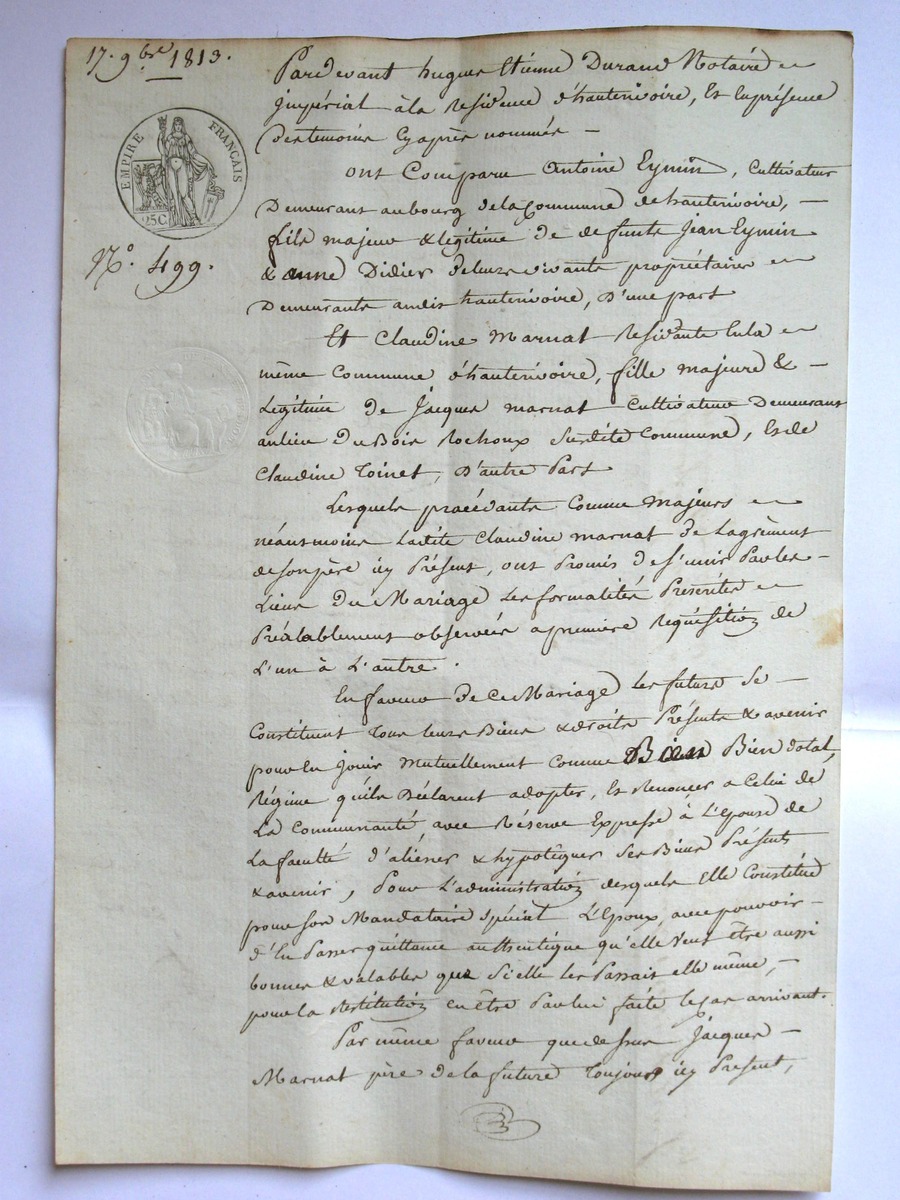 17. 9bre 1813.
EMPIRE FRANÇAIS
25 C.
N.° 499.
Pardevant hugues Etienne Durand Notaire
impérial à la residence d'hauterivoire, Et En présence
des temoins Cy après nommés
ont Comparu Antoine Eymin, Cultivateur
Demeurant au bourg de la Commune de hauterivoire,
fils majeur & legitime de defunts Jean Eymin
& anne Didier de leurs vivants propriétaires
Demeurants audit hauterivoire, D'une part
Et Claudine Marnat Residante En la
même Commune d'hauterivoire, fille majeure &
Legitime de Jacques marnat Cultivateur Demeurant
au lieu Du Bois Rochoux Susdite Commune, Et de
Claudine Toinet, D'autre Part
Lesquels procédants Comme majeurs
néantmoins Ladite Claudine marnat de Lagrément
de son père icy Présent, ont Promis de s'unir Par les
Liens Du Mariage Les formalités Prescrites
Préalablement observées a première Requisition de
L'un à L'autre.
En faveur De Ce Mariage Les futurs Se
Constituent Tous leurs Biens & droits Présents & avenir
pour En Jouir Mutuellement Comme Bien dotal,
Régime qu'ils Déclarent adopter, Et Renoncer a Celui de
La Communauté, avec Réserve Expresse à L'Epouse de
La faculté d'aliéner & hypotéquer Ses Biens Présents
& avenir, Pour L'administration desquels Elle Constitue
pour son Mandataire Spécial L'Epoux, avec pouvoir
d'En Passer quittance authentique qu'elle Veut être aussi
bonnes & valables que Si elle les Passait elle même,
pour la Restitution en être Par lui faite le Cas arrivant.
Par même faveur que dessus Jacques
Marnat père de la future Toujours icy Présent,